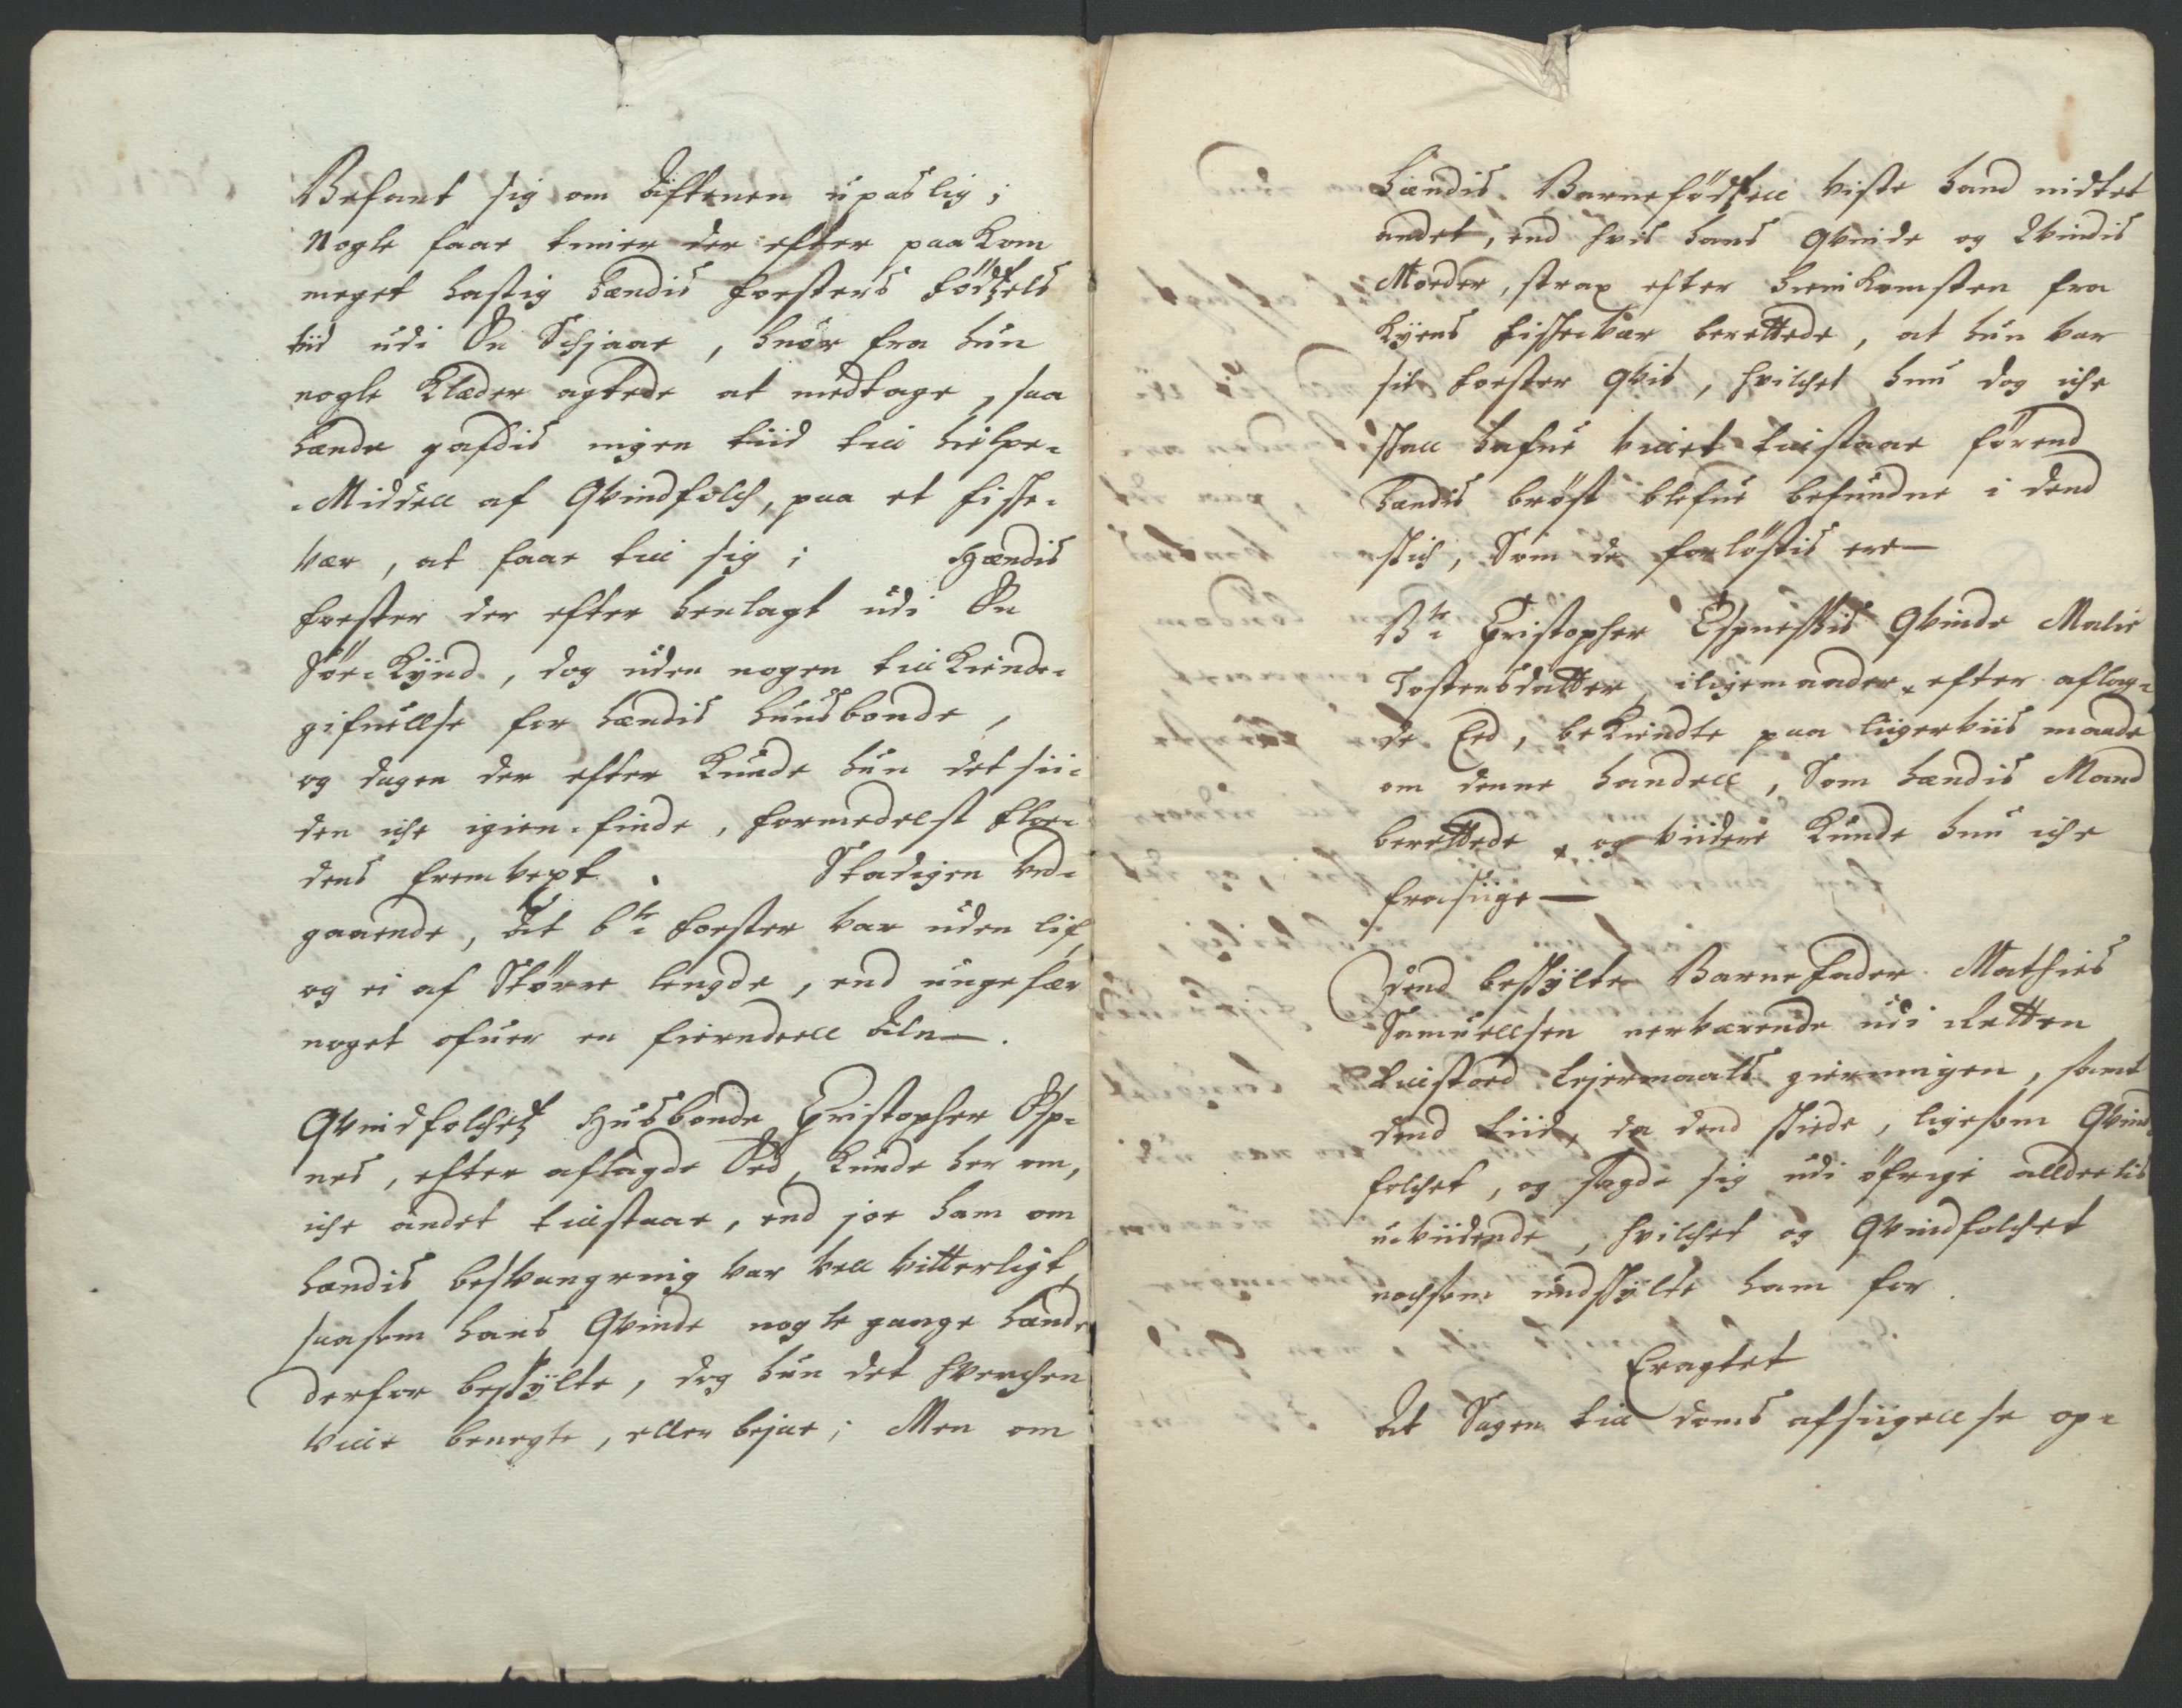 Befant sig om Aftenen upaslig;
Nogle faae timer der efter paakom
meget hastig hændis foesters fødtzels
tiid udi En Schjaae, huor fra hun
nogle Klæder agtede at medtage, saa
hænde gafdis ingen tiid till hielpe-
-Middell af Qvindfolch, paa et fisse-
vær, at faae till sig; Hændis
foester der efter henlagt udi En
Søe-Kynd, dog uden nogen tillkiende-
gifuellse for hændis huusbonde,
og dagen der efter kunde hun det sii-
den iche igien-finde, formedelst floe-
dens fremvext. Stadigen ved-
gaaende, At bte foester var uden lif,
og ei af Større lengde, end ungefær
noget ofuer en fierndeell Alen.
Qvindfolchetz Husbonde Christopher Esp-
nes, efter aflagde Eed, kunde her om,
iche andet tillstaae, end joe ham om
hændis besvangring var vell vitterligt,
saasom hans Qvinde nogle gange hænde
derfor beskylte, dog hun det hverchen
ville benegte, eller bejae; Men om
hændis Barnefødtzell viste hand nidtet
andet, end hvis hans Qvinde og Qvindis
Moeder, strax efter hiemkomsten fra
Kyens fisse-vær berettede, at hun var
sit foester qvit, hvilchet hun dog iche
skall hafue villet tillstaae førend
hændis brøst blefue befundne i dend
skich, Som de forløstis ere
Bte Christopher Espneskis Qvinde Malie
Tostensdatter iligemaader, efter aflag-
de Eed, bekiendte paa liigerviis maade
om denne handell, Som hændis Mand
berettede, og viidere kunde hun iche
frasiige
Dend beskylte Barnefader Mathies
Samuellsen nerværende udi Retten
tillstoed Lejermaals gierningen, samt
dend tiid, da dend skiede, ligesom Qvind
folchet, og sagde sig udi øfrige alldeelis
u-viidende, hvilchet og Qvindfolchet
nochsom undskylte ham for.
Eragtet
At Sagen till doms afsiigellse op-